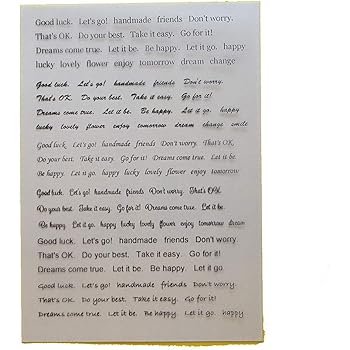 Good luck. Let's go! handmade friends Don't worry.
That's OK. Do your best. Take it easy. Go for it!
Dreams come true. Let it be. Be happy. Let it go. happy
lucky lovely flower enjoy tomorrow dream change
Good luck. Let's go! handmade friends Don't worry.
That's OK. Do your best. Take it easy. Go for it!
Dreams come true. Let it be. Be happy. Let it go. happy
lucky lovely flower enjoy tomorrow dream change smile
Good luck. Let's go! handmade friends Don't worry. That's OK.
Do your best. Take it easy. Go for it! Dreams come true. Let it be.
Be happy. Let it go. happy lucky lovely flower enjoy tomorrow
Good luck. Let's go! handmade friends Don't worry. That's OK.
Do your best. Take it easy. Go for it! Dreams come true. Let it be.
Be happy Let it go. happy lucky lovely flower enjoy tomorrow dream
Good luck. Let's go! handmade friends Don't worry.
That's OK. Do your best. Take it easy. Go for it!
Dreams come true. Let it be. Be happy. Let it go.
Good luck. Let's go! handmade friends Don't worry.
That's OK. Do your best. Take it easy. Go for it!
Dreams come true. Let it be. Be happy. Let it go. happy